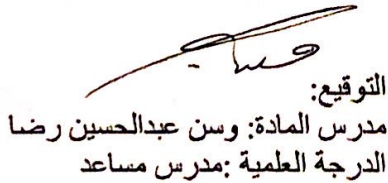 التوقيع:
مدرس المادة: وسن عبدالحسين رضا
الدرجة العلمية :مدرس مساعد